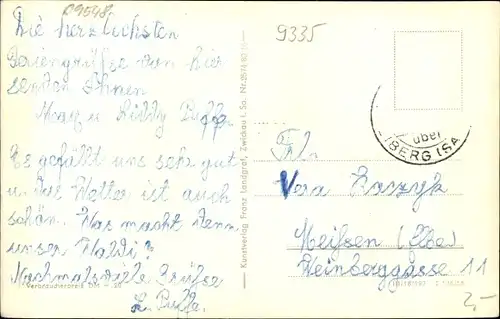 09598
Die herzlichsten
Feriengrüße von hier
senden Ihnen
Max u Liddy Puffe
Es gefällt uns sehr gut
u. das Wetter ist auch
schön. Was macht denn
unser Waldi?
Nochmals viele Grüße
L. Puffe.
Verbraucherpreis DM -,20
Kunstverlag Franz Landgraf, Zwickau i. Sa. Nr.
9335
über
IBERG (SA
Frln
Vera
Meißen (Elbe)
Weinberggasse 11
2,-